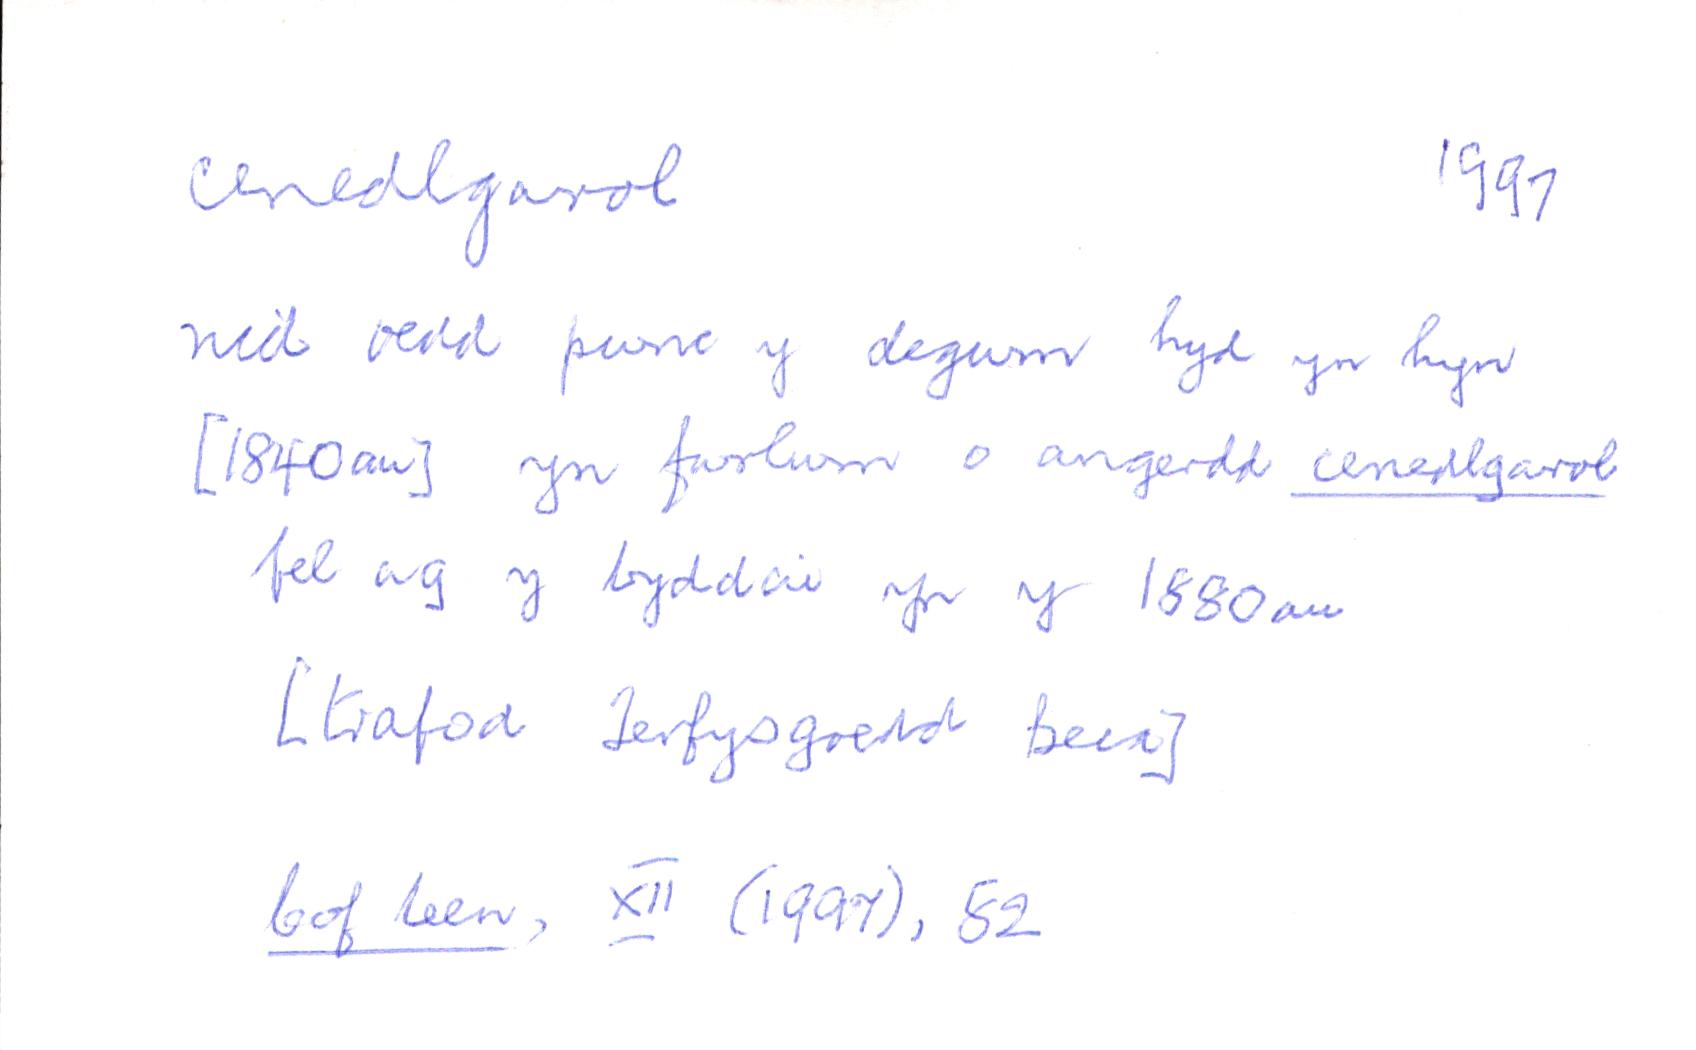 cenedlgarol 1997
nid oedd pwnc y degwm hyd yn hyn
[1840au] yn fwrlwm o angerdd cenedlgarol
fel ag y byddai yn y 1880au
[trafod Terfysgoedd Beca]
Cof Cen, XII (1997), 52